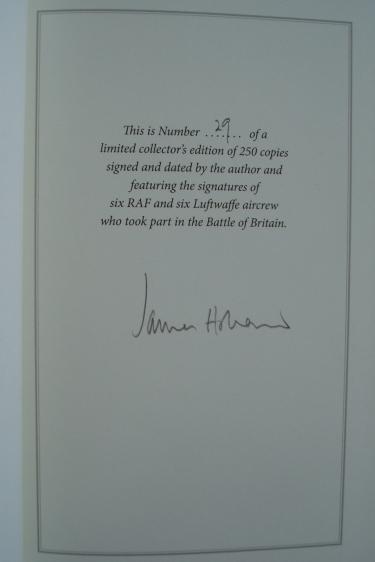 This is Number ..29.. of a
limited collector's edition of 250 copies
signed and dated by the author and
featuring the signatures of
six RAF and six Luftwaffe aircrew
who took part in the Battle of Britain.
James Holland